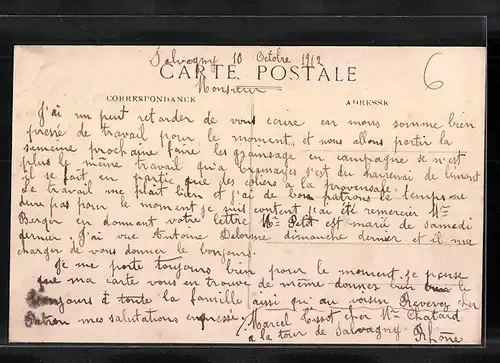 Salvagny 10 Octobre 1912
CARTE POSTALE
6
Monsieur
CORRESPONDANCE
ADRESSE
J'ai un peut retarder de vous écrire car nous somme bien
pressé de travail pour le moment, et nous allons partir la
semaine prochaine faire les grainsage en campagne se n'est
plus le même travail qu'a brignanes s'est du
il se fait en partie que des coliers à la provensale
se travail me plait bien et j'ai de bon patrons le temps me
dure pas pour le moment je suis content j'ai été remercier Mr
Berger en donnant votre lettre Mr Petit est marié de samedi
dernier. J'ai vue Antoine Delorme dimanche dernier et il ma
charger de vous donner le bonjours.
Je me porte toujours bien pour le moment je pense
que ma carte vous en trouve de même donnez bien le
bonjours à toute la famille aussi qu'au voisin Revevez cher
Patron mes salutations empressé
Marcel Tissot cher Mr Chatard
a la tour de Salvagny Rhône